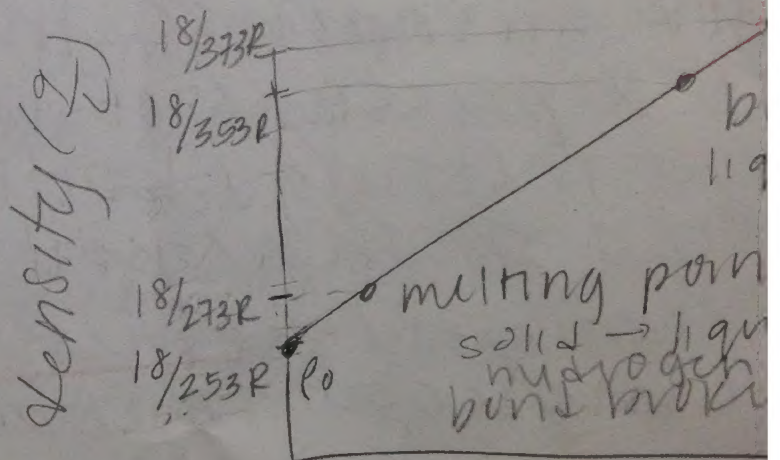 Density (g/L)
18/373R
18/353R
18/273R
18/253R ρ₀
b
liq
melting poin
solid → liqu
hydrogen
bond broke